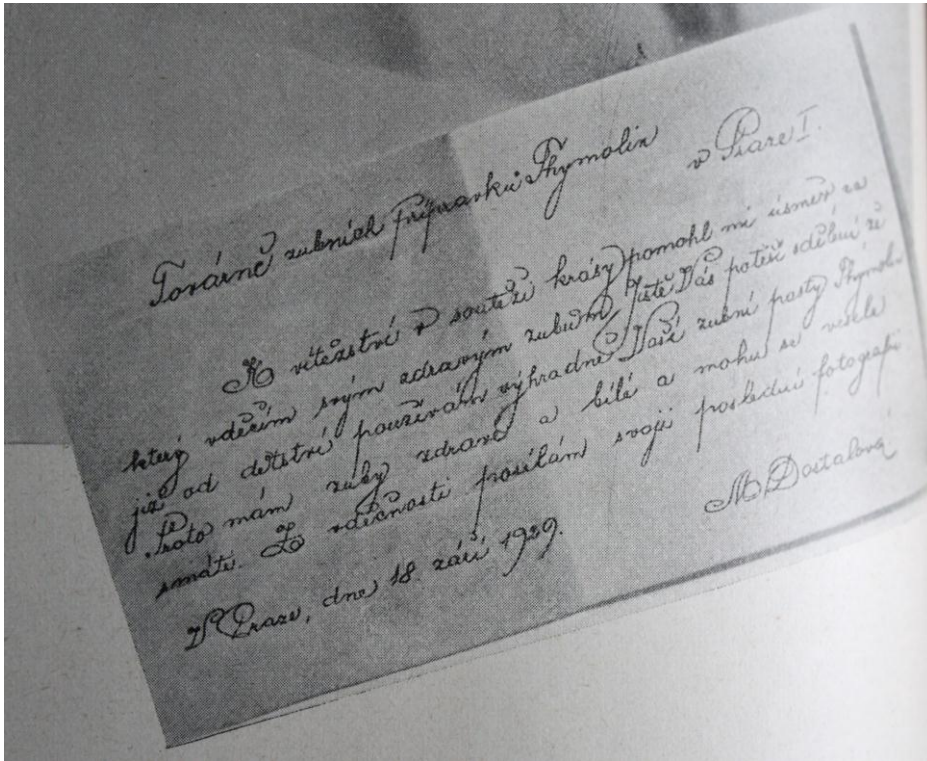 Továrně zubních přípravků Thymolin
v Praze I.
K vítězství v soutěži krásy pomohl mi úsměv za
který vděčím svým zdravým zubům, Jistě Vás potěší sdělení že
již od dětství používám výhradně Vaší zubní pasty Thymolin
Proto mám zuby zdravé a bílé a mohu se vesele
smáti. Z vděčnosti posílám svoji poslední fotografii
M. Dostalová
V Praze, dne 18. září 1929.